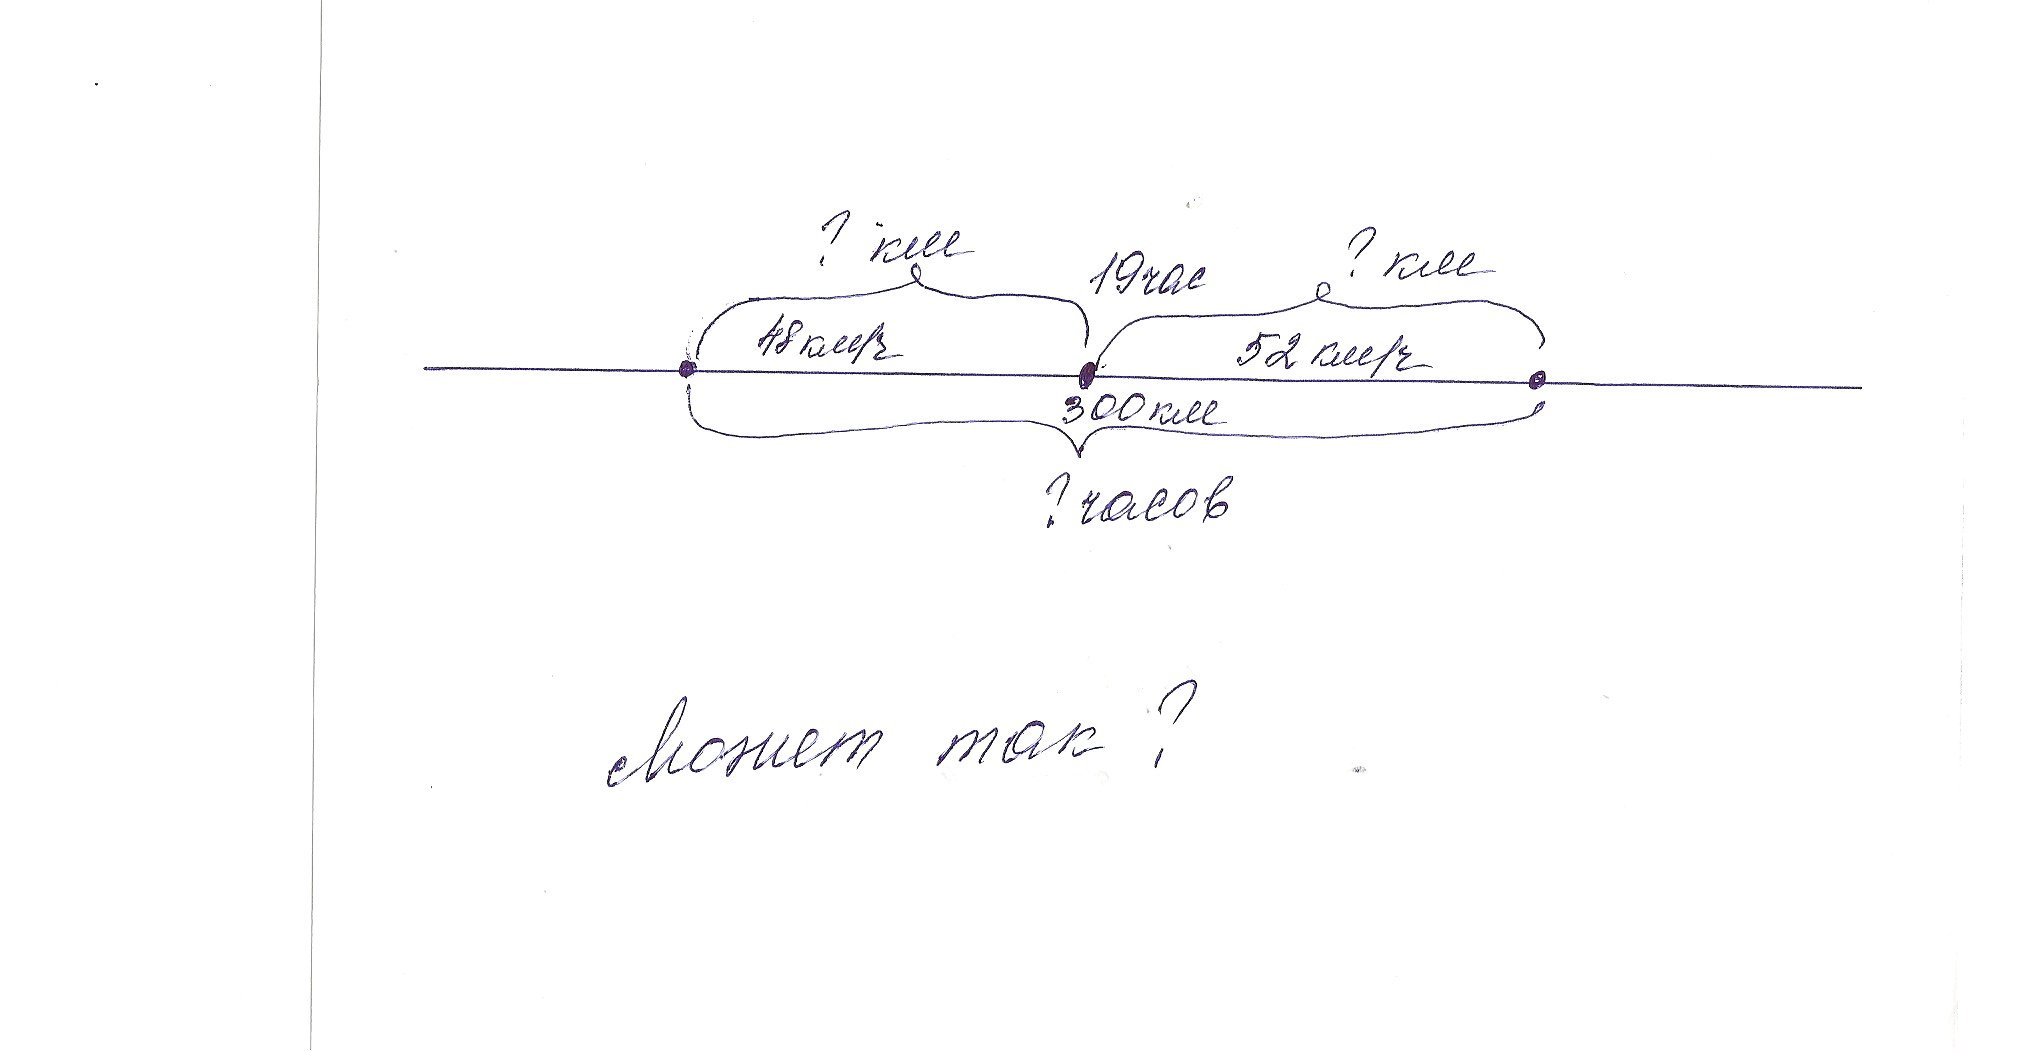 ? км 19 час ? км
48 км/ч 52 км/ч
300 км
? часов
Может так ?